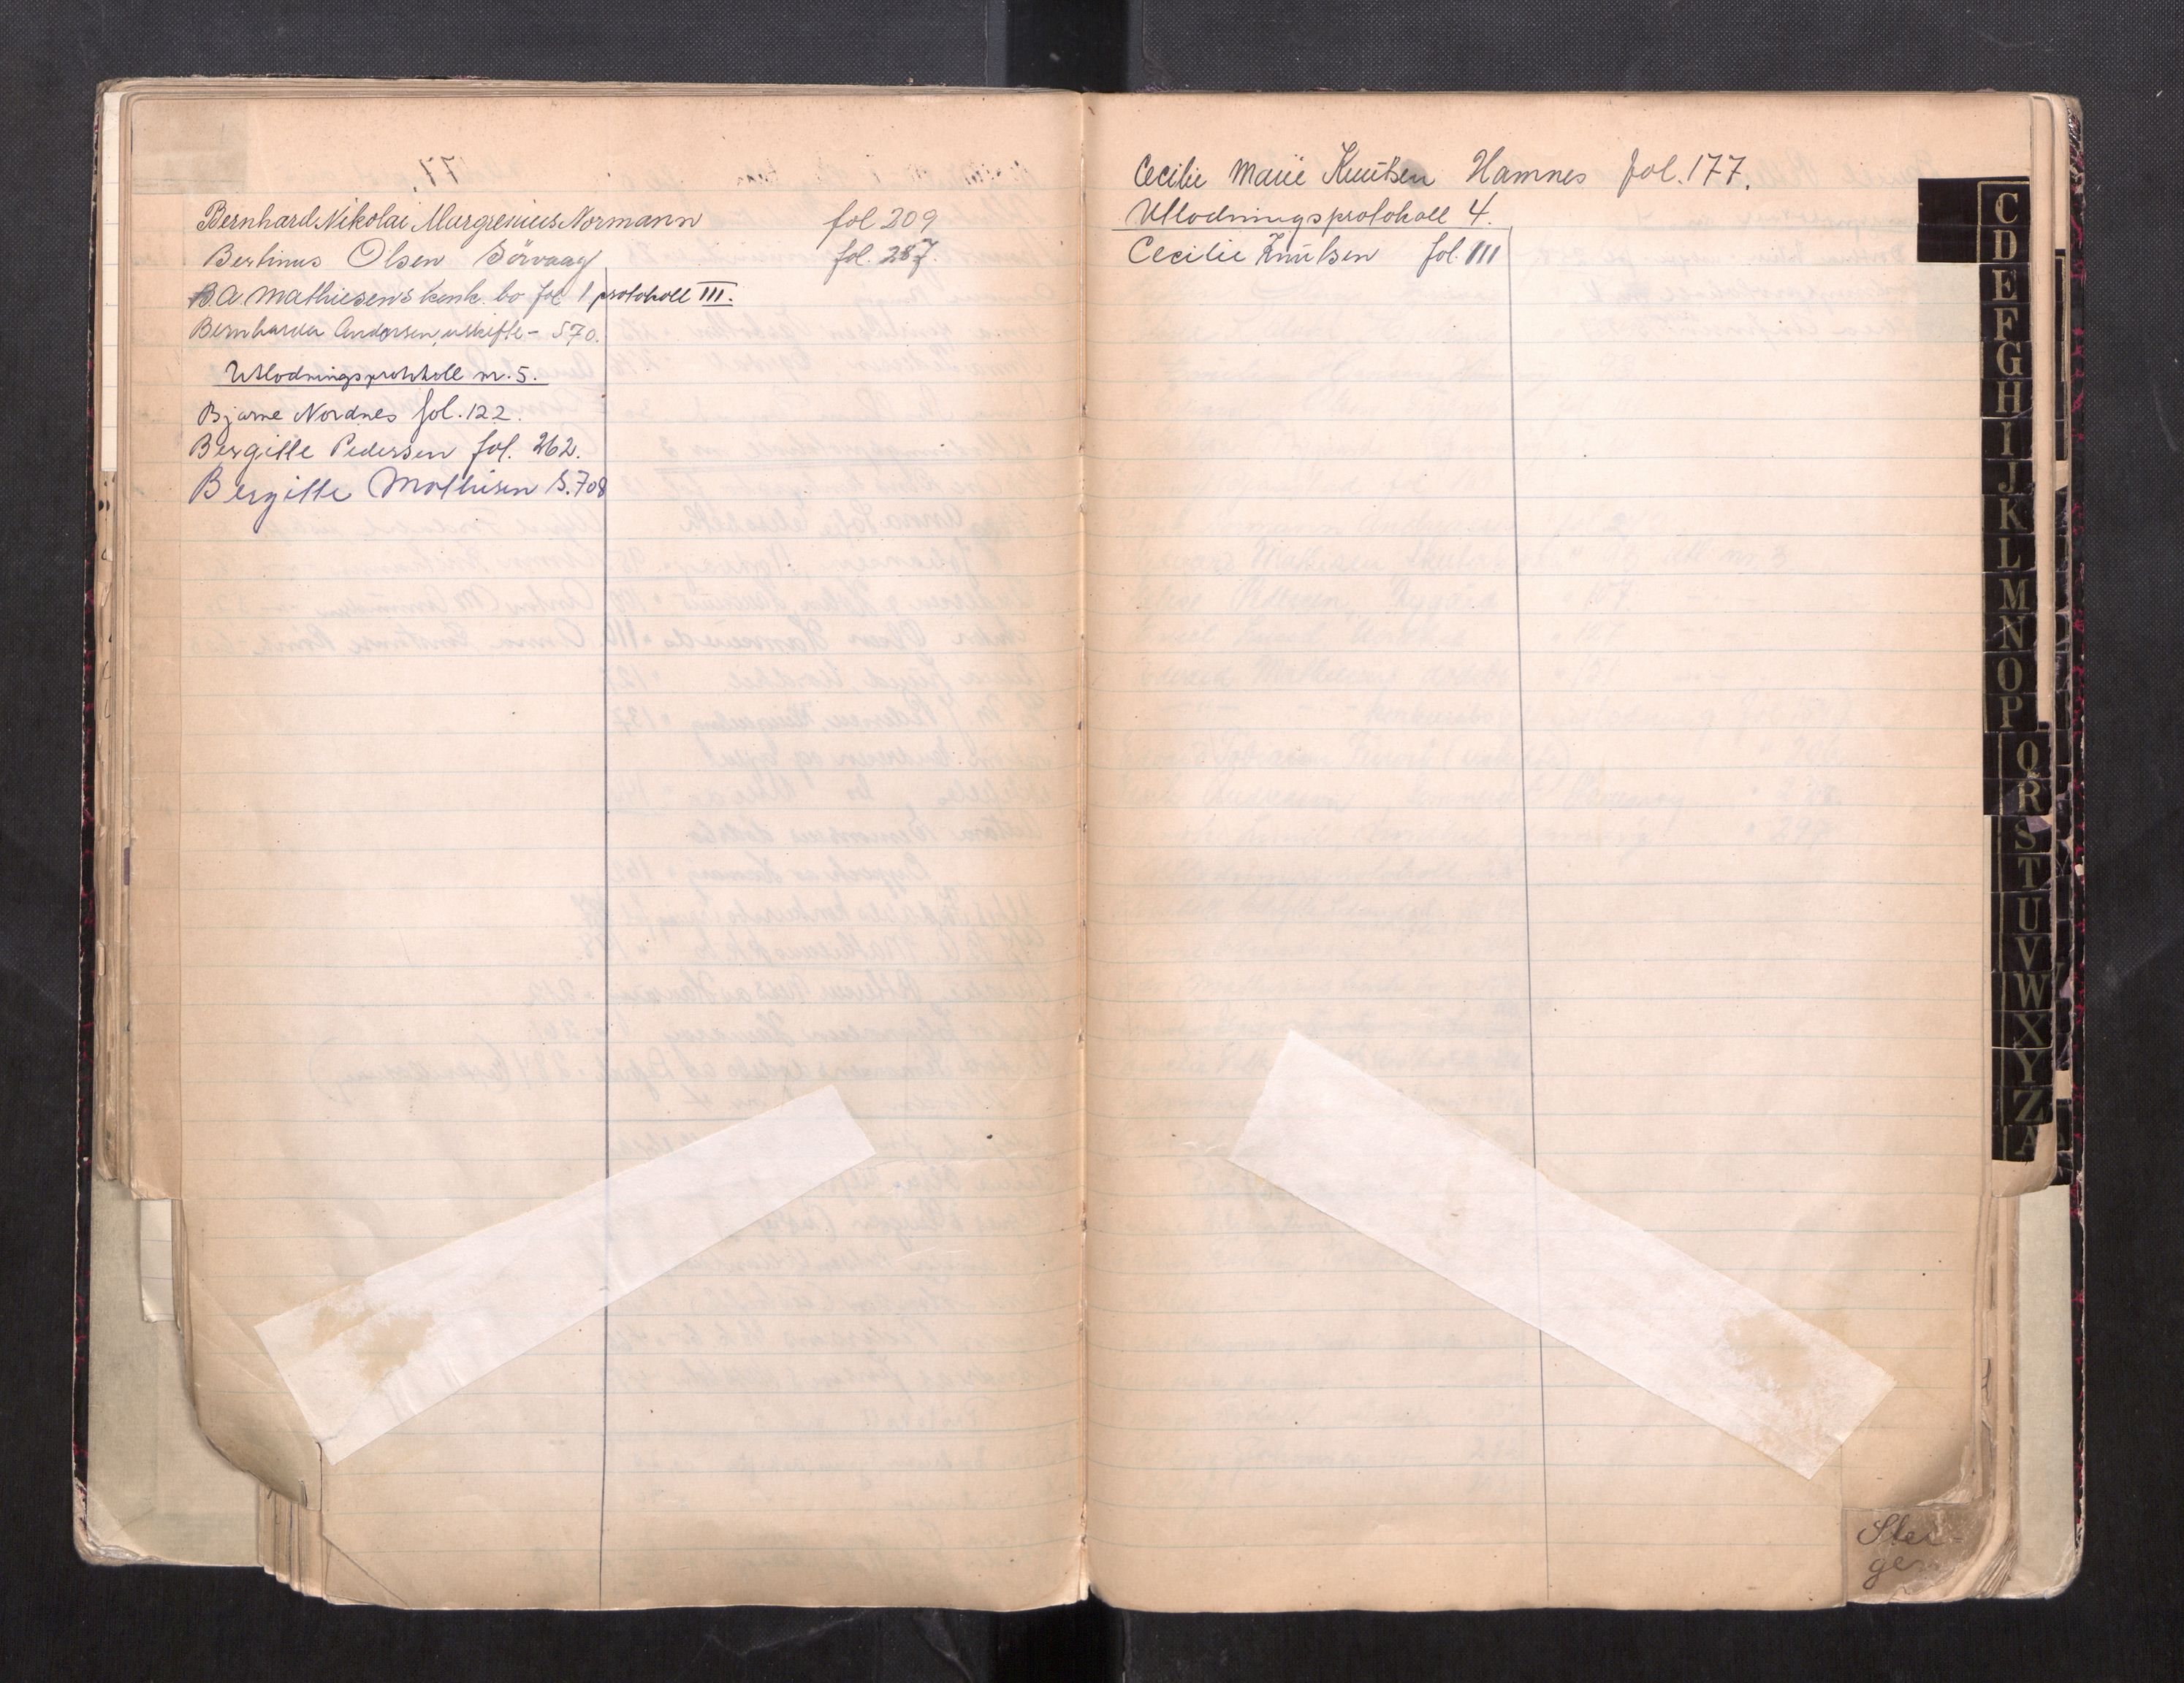 Bernhard Nikolai Margrenius Normann fol 209
Bertinus Olsen Börvaag fol. 287.
B. A. Mathiesens konk. bo fol 1 protokoll III.
Bernharda Andersen, uskifte - S 70.
Utlodningsprotokoll nr. 5.
Bjarne Nordnes fol. 122.
Bergitte Pedersen fol. 262.
Bergitte Mathisen S. 708
Cecilie Marie Knutsen Hamnes fol. 177.
Utlodningsprotokoll 4.
Cecilie Knutsen fol. 111
C
D
E
F
G
H
I
J
K
L
M
N
O
P
Q
R
S
T
U
V
W
X
Y
Z
Stei-
gen